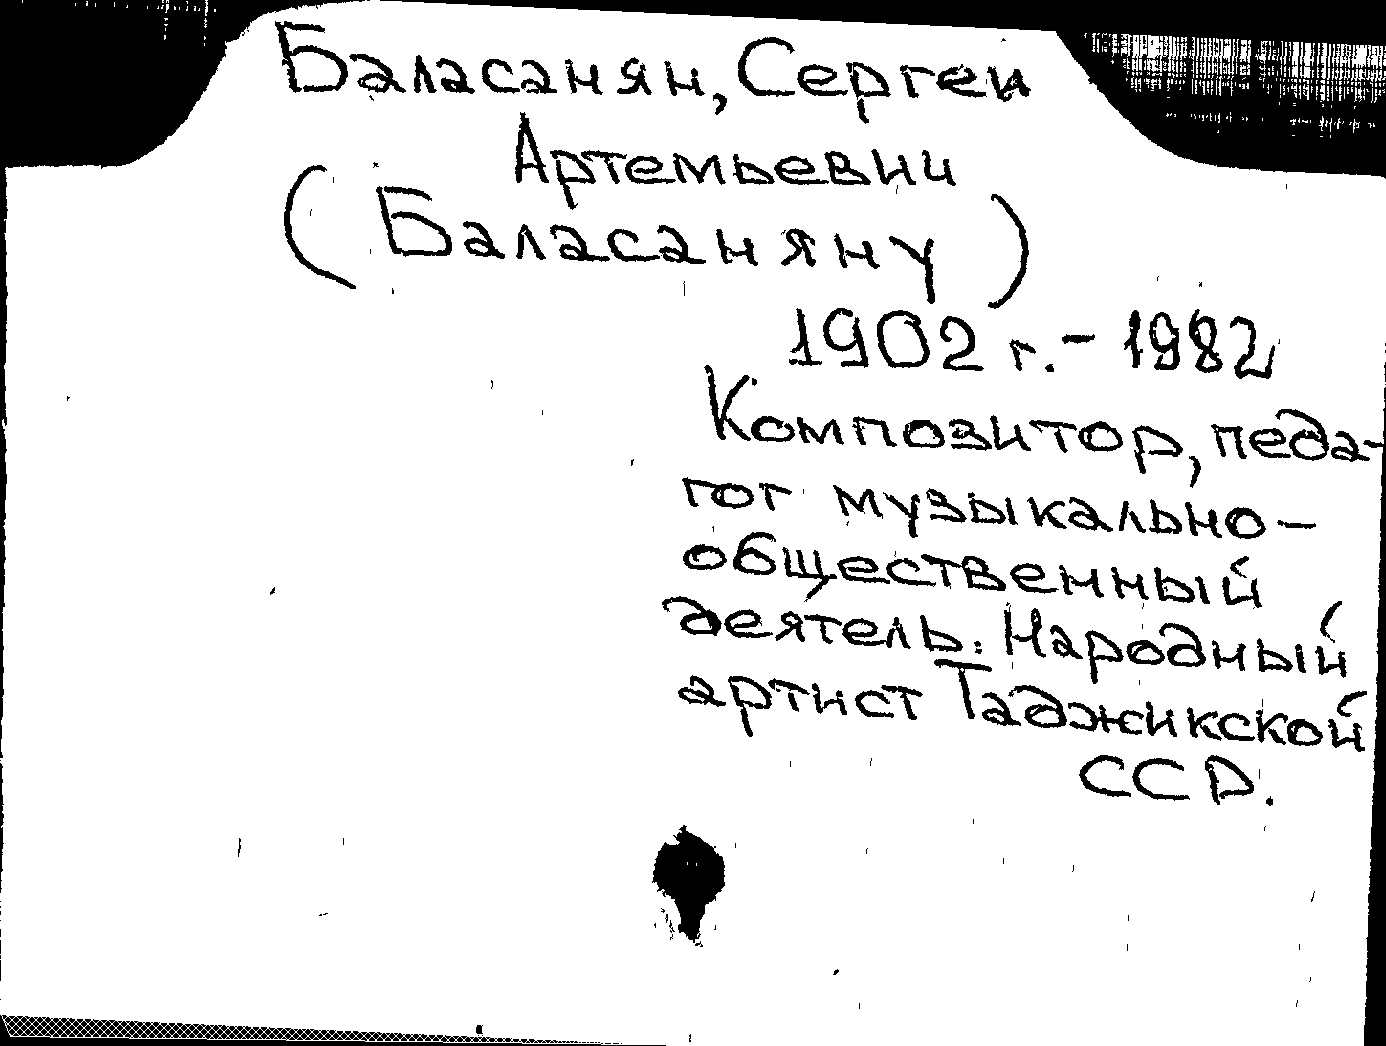 Баласанян, Сергеи
Артемьевич
(Баласаняну)
1902 г. - 1982
Композитор, педа-
гог музыкально-
общественный
деятель. Народный
артист Таджикской
ССР.